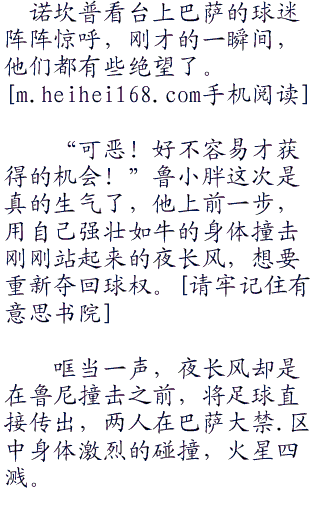 诺坎普看台上巴萨的球迷
阵阵惊呼，刚才的一瞬间，
他们都有些绝望了。
[m.heihei168.com手机阅读]
“可恶！好不容易才获
得的机会！”鲁小胖这次是
真的生气了，他上前一步，
用自己强壮如牛的身体撞击
刚刚站起来的夜长风，想要
重新夺回球权。[请牢记住有
意思书院]
哐当一声，夜长风却是
在鲁尼撞击之前，将足球直
接传出，两人在巴萨大禁.区
中身体激烈的碰撞，火星四
溅。